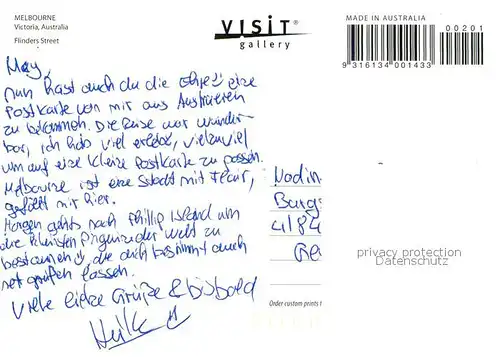 MELBOURNE
Victoria, Australia
Flinders Street
VISIT®
gallery
MADE IN AUSTRALIA
00201
9 316134 001433
Hey,
nun hast auch du die Ehre eine
Postkarte von mir aus Australien
zu bekommen. Die Reise war wunder-
bar, ich hab viel erlebt, vielzuviel
um auf eine kleine Postkarte zu passen.
Melbourne ist eine Stadt mit Flair,
gefällt mir hier.
Morgen gehts nach Phillip Island um
die kleinsten Pinguine der Welt zu
bestaunen, die dich bestimmt auch
net grüßen lassen.
Viele liebe Grüße & bis bald
Nadin
Burgs
4184
Ge
privacy protection
Datenschutz
Order custom prints